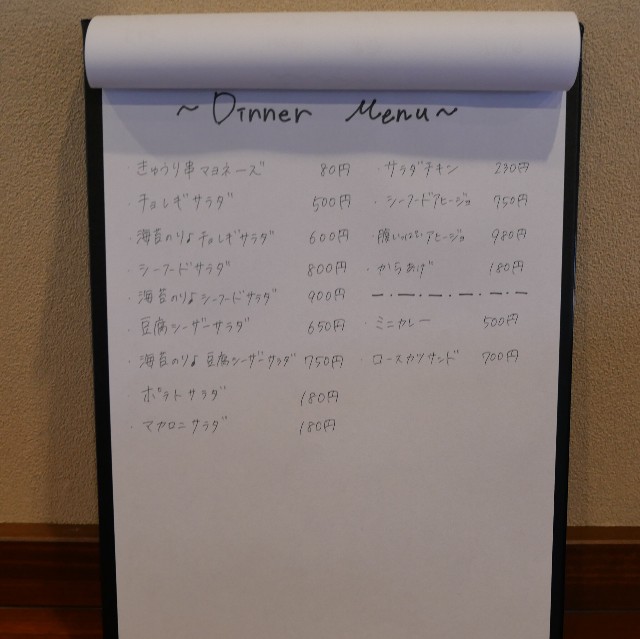 ~Dinner Menu~
・きゅうり串マヨネーズ 80円
・チョレギサラダ 500円
・海苔のりよチョレギサラダ 600円
・シーフードサラダ 800円
・海苔のりよシーフードサラダ 900円
・豆腐シーザーサラダ 650円
・海苔のりよ豆腐シーザーサラダ 750円
・ポテトサラダ 180円
・マカロニサラダ 180円
・サラダチキン 230円
・シーフードアヒージョ 750円
・腹いっぱいアヒージョ 980円
・からあげ 180円
・ミニカレー 500円
・ロースカツサンド 700円